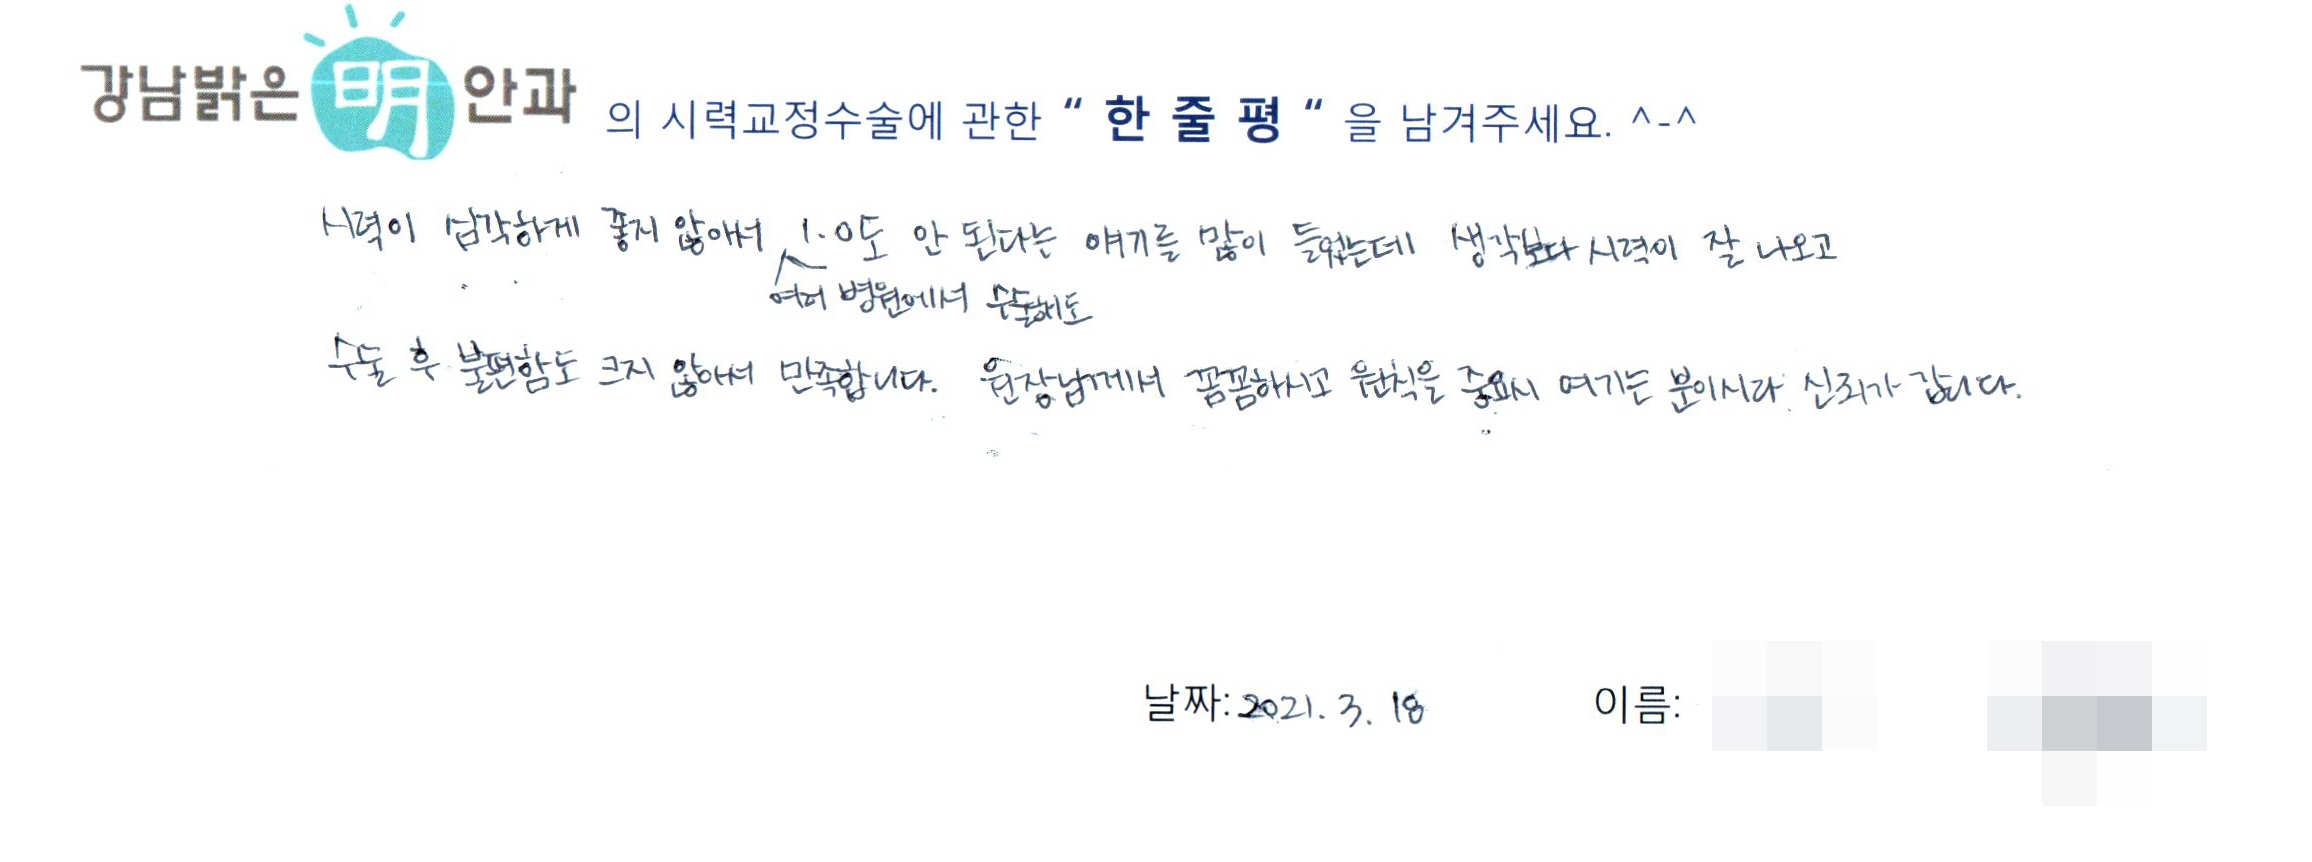 강남밝은 明 안과 의 시력교정수술에 관한 “ 한 줄 평 “ 을 남겨주세요. ^-^
시력이 심각하게 좋지 않아서 1.0도 안 된다는 얘기를 많이 들었는데 생각보다 시력이 잘 나오고
여러 병원에서 수술해도
수술 후 불편함도 크지 않아서 만족합니다. 원장님께서 꼼꼼하시고 원칙을 중요시 여기는 분이시라 신뢰가 갑니다.
날짜: 2021. 3. 18 이름: